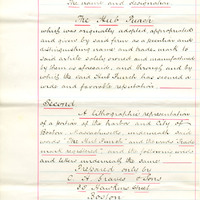 The name and designation
The Hub Punch
which was originally adopted, appropriated
and given by said firm as a peculiar and
distinguishing name and trade mark to
said article solely owned and manufactured
by them as aforesaid, and through and by
which the said Hub Punch has secured a
wide and favorable reputation.
Second
A lithographic representation
of a portion of the harbor and City of
Boston, Massachusetts, underneath said
words "The Hub Punch" and the words "Trade
mark secured", and the following words
and letters underneath the same:
Prepared only by
C. H. Graves & Sons
35 Hawkins Street
Boston